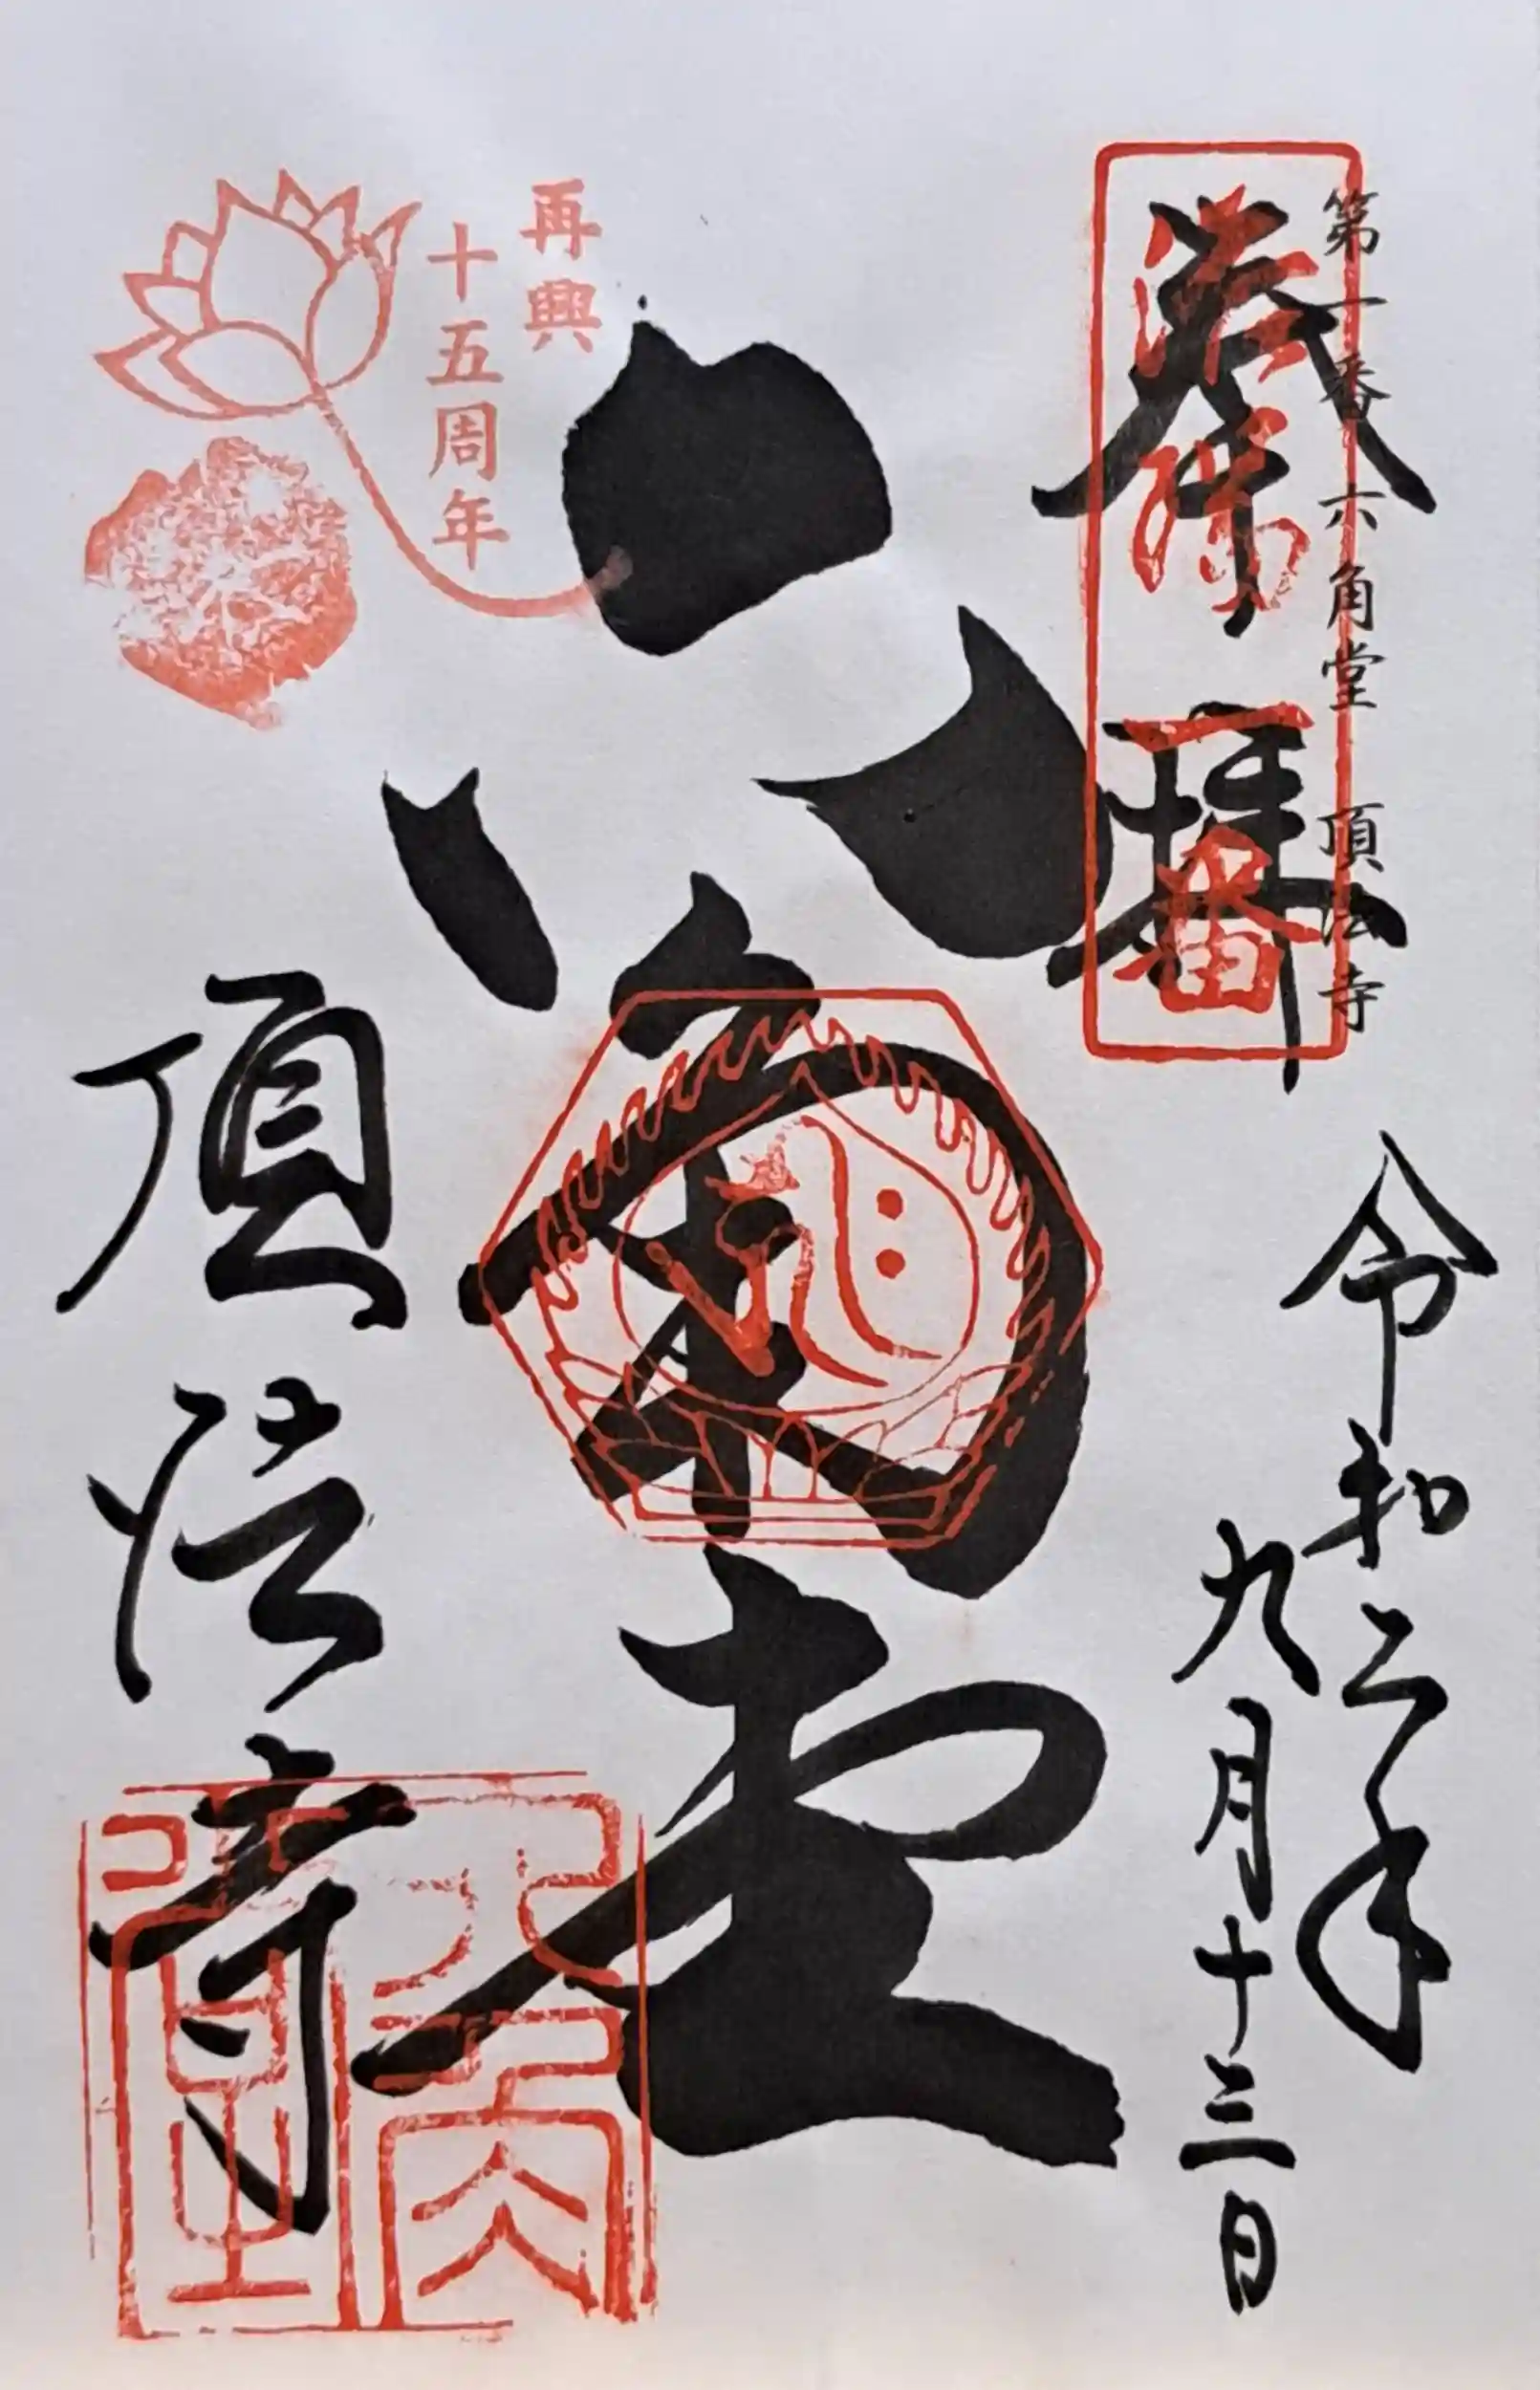 第一番 六角堂 頂法寺
奉拝
洛陽
一番
令和二年
九月十三日
六角堂
再興
十五周年
頂法寺
六角堂